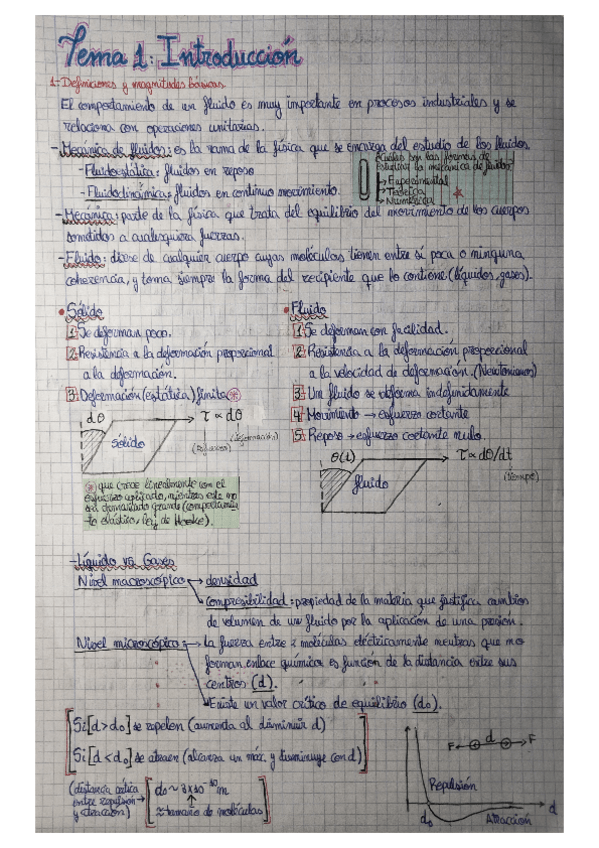 Tema 1: Introducción
1-Definiciones y magnitudes básicas
El comportamiento de un fluido es muy importante en procesos industriales y se
relaciona con operaciones unitarias.
-Mecánica de fluidos: es la rama de la física que se encarga del estudio de los fluidos
-Fluidoestática: fluidos en reposo
-Fluidodinámica: fluidos en continuo movimiento.
¿Cuáles son las formas de
estudiar la mecánica de fluidos?
Experimental
Teórica
Numérica
-Mecánica: parte de la física que trata del equilibrio del movimiento de los cuerpos
sometidos a cualesquiera fuerzas.
-Fluido: dícese de cualquier cuerpo cuyas moléculas tienen entre sí poca o ninguna
coherencia, y toma siempre la forma del recipiente que lo contiene (líquidos, gases).
• Sólido
1 Se deforman poco.
2 Resistencia a la deformación proporcional
a la deformación.
3 Deformación (estática) finita *
dθ
τ ∝ dθ
(esfuerzo)
(deformación)
Sólido
* que crece linealmente con el
esfuerzo aplicado, mientras este no
sea demasiado grande (comportamien-
to elástico, ley de Hooke).
• Fluido
1 Se deforman con facilidad.
2 Resistencia a la deformación proporcional
a la velocidad de deformación. (Newtonianos)
3 Un fluido se deforma indefinidamente
4 Movimiento → esfuerzo cortante
5 Reposo → esfuerzo cortante nulo.
θ(t)
τ ∝ dθ/dt
(tiempo)
fluido
-Líquido vs Gases
Nivel macroscópico → densidad
compresibilidad: propiedad de la materia que justifica cambios
de volumen de un fluido por la aplicación de una presión.
Nivel microscópico → la fuerza entre 2 moléculas eléctricamente neutras que no
forman enlace químico es función de la distancia entre sus
centros (d).
Existe un valor crítico de equilibrio (d₀).
Si [d > d₀] se repelen (aumenta al disminuir d)
Si [d < d₀] se atraen (alcanza un máx. y disminuye con d)
(distancia crítica
entre repulsión
y atracción)
d₀ ~ 3x10⁻¹⁰ m
≈ tamaño de moléculas
F
d
F
Repulsión
d₀
Atracción
d